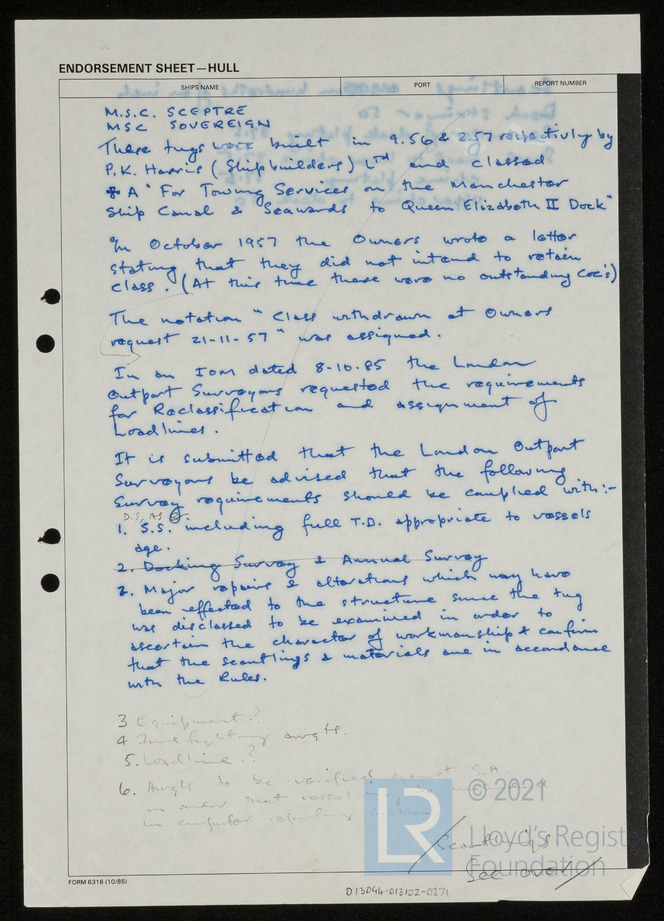 ENDORSEMENT SHEET — HULL
SHIPS NAME PORT REPORT NUMBER
M.S.C. SCEPTRE
MSC SOVEREIGN
These tugs were built in 9.56 & 2.57 respectively by
P.K. Harris (Shipbuilders) Ltd and classed
✠ A "For Towing Services on the Manchester
Ship Canal & Seawards to Queen Elizabeth II Dock"
In October 1957 the Owners wrote a letter
stating that they did not intend to retain
class. (At this time there were no outstanding CoC's)
The notation "Class withdrawn at Owners
request 21-11-57" was assigned.
In an IOM dated 8-10.85 the London
Outport Surveyors requested the requirements
for Reclassification and assignment of
Loadlines.
It is submitted that the London Outport
Surveyors be advised that the following
Survey requirements should be complied with:-
D.S, AS &
1. S.S. including full T.D. appropriate to vessels
age.
2. Docking Survey & Annual Survey
2. Major repairs & alterations which may have
been effected to the structure since the tug
was disclassed to be examined in order to
ascertain the character of workmanship & confirm
that the scantlings & materials are in accordance
with the Rules.
3 Equipment.?
4 Fire fighting arrgts.
5. Loadline.?
6. Arrgts to be verified S.A.
in order that vessel
in computer reporting system
Scantlings
See over
© 2021
LR Lloyd's Register
Foundation
FORM 6316 (10/85)
013044-013102-0271